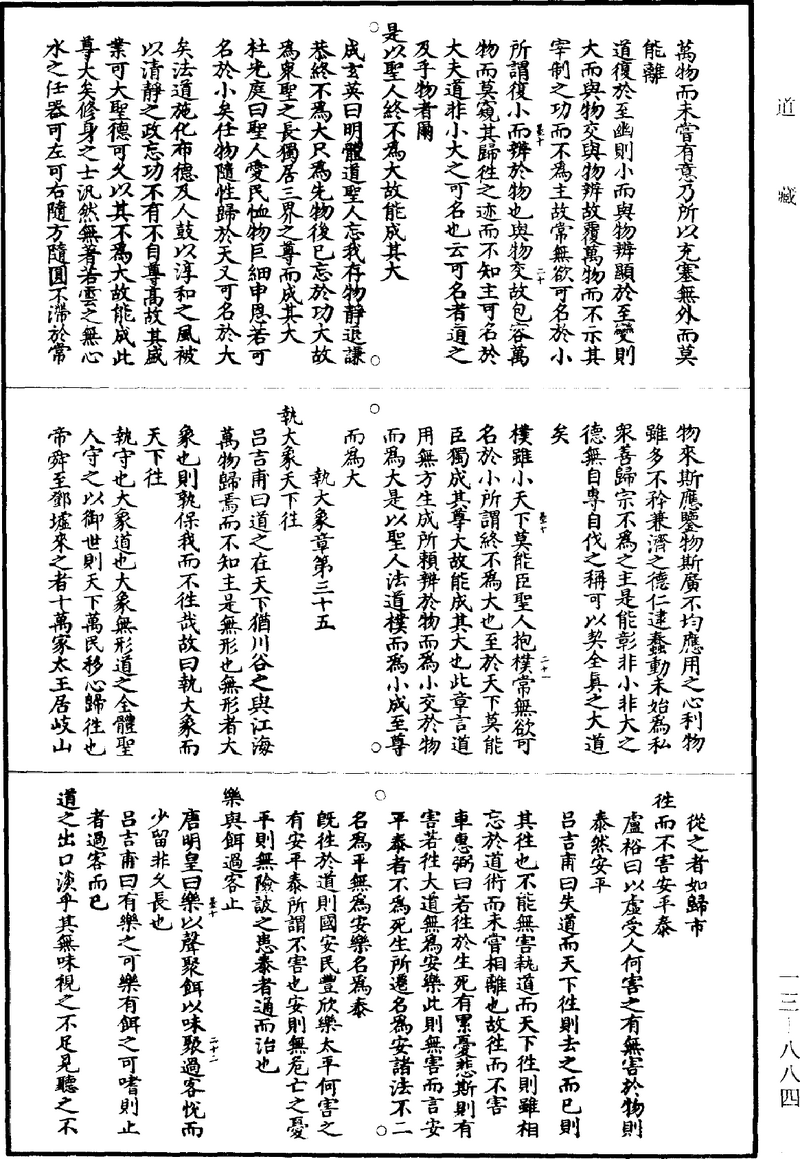 道藏
萬物而未嘗有意乃所以充塞無外而莫
能離
道復於至幽則小而與物辨顯於至變則
大而與物交與物辨故覆萬物而不示其
宰制之功而不為主故常無欲可名於小
所謂復小而辨於物也與物交故包容萬
物而莫窺其歸徃之迹而不知主可名於
大夫道非小大之可名也云可名者道之
及乎物者爾
是以聖人終不為大故能成其大
成玄英曰明體道聖人忘我存物靜退謙
恭終不為大只為先物後已忘於功大故
為衆聖之長獨居三界之尊而成其大
杜光庭曰聖人愛民恤物巨細申恩若可
名於小矣任物隨性歸於天又可名於大
矣法道施化布德及人鼓以淳和之風被
以清靜之政忘功不有不自尊髙故其盛
業可大聖德可久以其不為大故能成此
尊大矣修身之士汎然無著若雲之無心
水之任器可左可右隨方隨圓不滯於常
物來斯應鑒物斯廣不均應用之心利物
雖多不矜兼濟之德仁逮蠢動未始為私
衆善歸宗不為之主是能彰非小非大之
德無自專自伐之稱可以契全真之大道
矣
樸雖小天下莫能臣聖人抱樸常無欲可
名於小所謂終不為大也至於天下莫能
臣獨成其尊大故能成其大也此章言道
用無方生成所賴辨於物而為小交於物
而為大是以聖人法道樸而為小成至尊
而為大
執大象章第三十五
執大象天下徃
呂吉甫曰道之在天下猶川谷之與江海
萬物歸焉而不知主是無形也無形者大
象也則孰保我而不徃哉故曰執大象而
天下徃
執守也大象道也大象無形道之全體聖
人守之以御世則天下萬民移心歸徃也
帝舜至鄧墟來之者十萬家太王居岐山
從之者如歸市
徃而不害安平泰
盧裕曰以虛受人何害之有無害於物則
泰然安平
呂吉甫曰失道而天下徃則去之而已則
其徃也不能無害執道而天下徃則雖相
忘於道術而未嘗相離也故徃而不害
車惠弼曰若徃於生死有累憂悲斯則有
害若徃大道無為安樂此則無害而言安
平泰者不為死生所遷名為安諸法不二
名為平無為安樂名為泰
旣徃於道則國安民豐欣樂太平何害之
有安平泰所謂不害也安則無危亡之憂
平則無險詖之患泰者通而治也
樂與餌過客止
唐明皇曰樂以聲聚餌以味聚過客悅而
少留非久長也
呂吉甫曰有樂之可樂有餌之可嗜則止
者過客而已
道之出口淡乎其無味視之不足見聽之不
一三－八八四